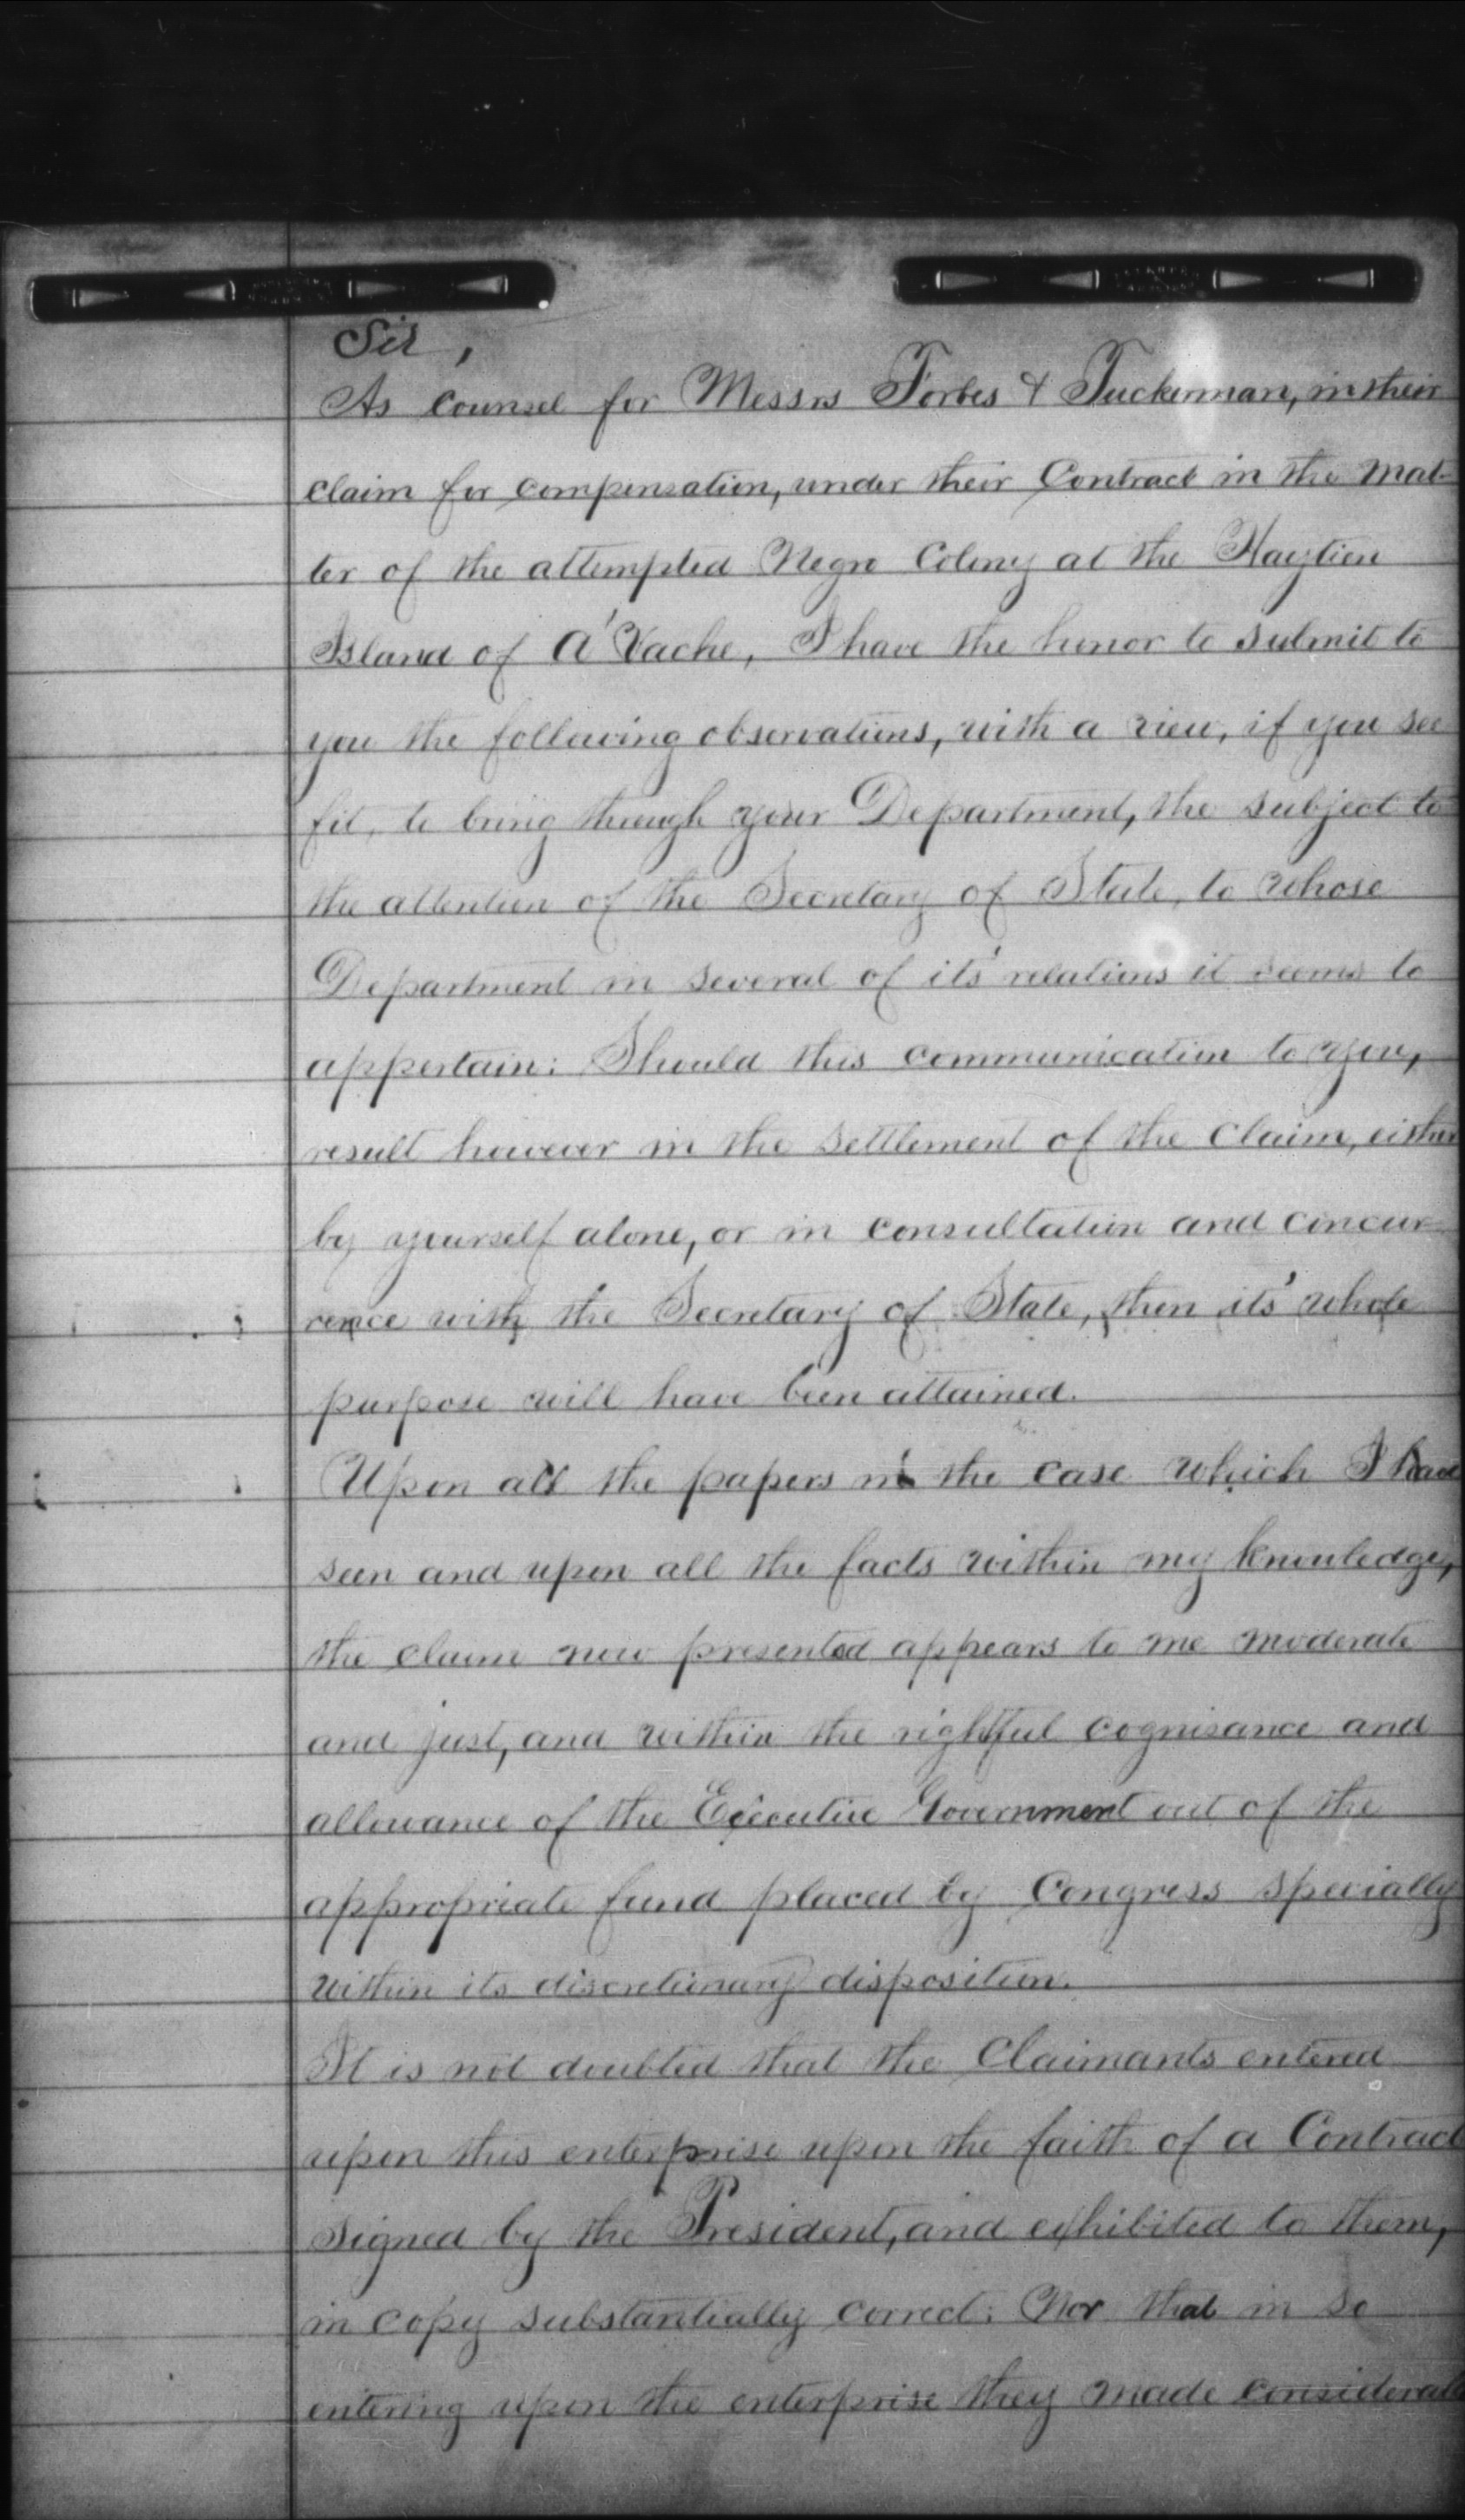 Sir,
As Counsel for Messrs Forbes & Tuckerman, in their
claim for compensation, under their Contract in the Mat-
ter of the attempted Negro Colony at the Haytien
Island of A'Vache, I have the honor to submit to
you the following observations, with a view, if you see
fit, to bring through your Department, the subject to
the attention of the Secretary of State, to whose
Department in several of its' relations it seems to
appertain: Should this communication to you,
result however in the settlement of the Claim, either
by yourself alone, or in consultation and concur-
rence with the Secretary of State, then its' whole
purpose will have been attained.
Upon all the papers in the case which I have
seen and upon all the facts within my knowledge,
the claim now presented appears to me moderate
and just, and within the rightful cognisance and
allowance of the Executive Government out of the
appropriate fund placed by Congress specially
within its discretionary disposition.
It is not doubted that the Claimants entered
upon this enterprise upon the faith of a Contract
signed by the President, and exhibited to them,
in copy substantially correct: Nor that in so
entering upon the enterprise they made considerable